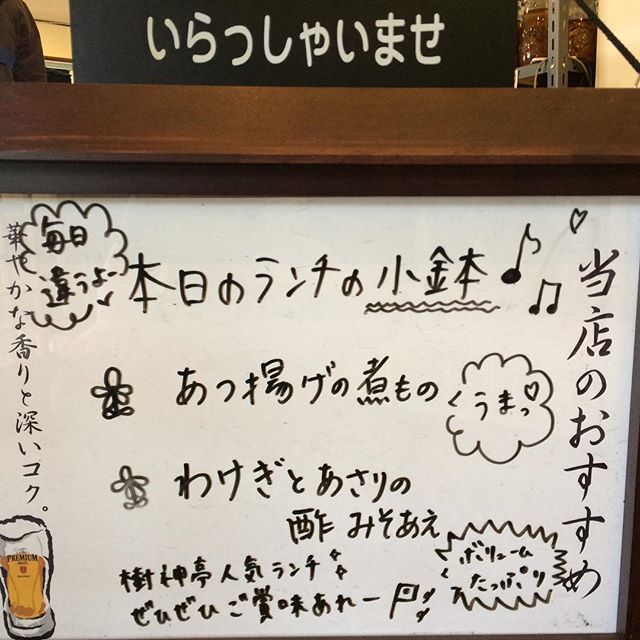 いらっしゃいませ
当店のおすすめ
毎日
違うよ
本日のランチの小鉢
あつ揚げの煮もの
うまっ
わけぎとあさりの
酢みそあえ
樹神亭人気ランチ
ぜひぜひご賞味あれー
ボリューム
たっぷり
華やかな香りと深いコク。
PREMIUM